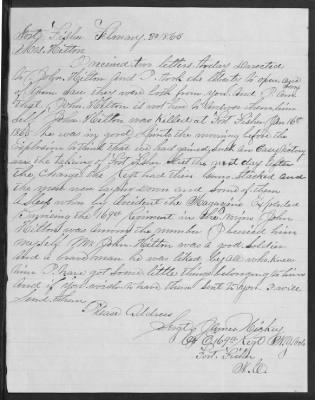 Fort Fisher Febuary 8th 1865
Mrs. Hilton
I received two letters today directed
to John Hilton and I took the liberty to open
of them saw they were both from you and I am
that John Hilton is not here to answer them him
self John Hilton was killed at Fort Fisher Jan 16th
1865 he was in good spirits the morning before the
explosion to think that we had gained such an easy victory
in the taking of Fort Fisher but the next day after
the Charge the Regt had their arms stacked and
the men were laying down and some of them
asleep when by accident the Magazine Exploded
burying the 169th Regiment in the ruins John
Hilton was among the number I buried him
myself Mrs John Hilton was a good soldier
and a brave man he was liked by all who knew
him I have got some little things belonging to him
and if you wish to have them sent to you I will
send them
Please Address
Sergt James Hickey
Co 169th Regt N.Y. Vols
Fort Fisher
N.C.